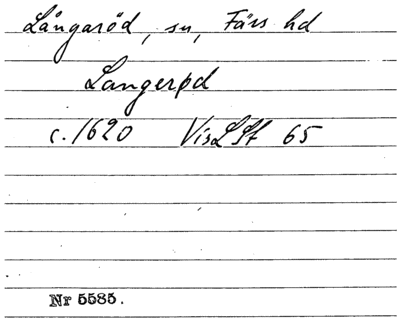 Långaröd, sn, Färs hd
Langerød
c. 1620 VisLSt 65
Nr 5585.